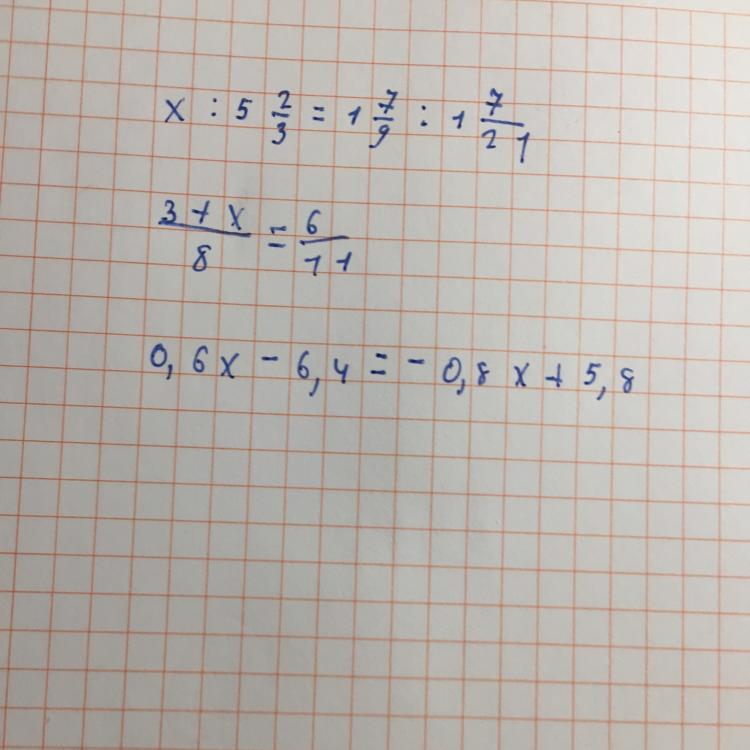 x : 5 2/3 = 1 7/9 : 1 7/21
3 + x / 8 = 6/11
0,6x - 6,4 = - 0,8x + 5,8